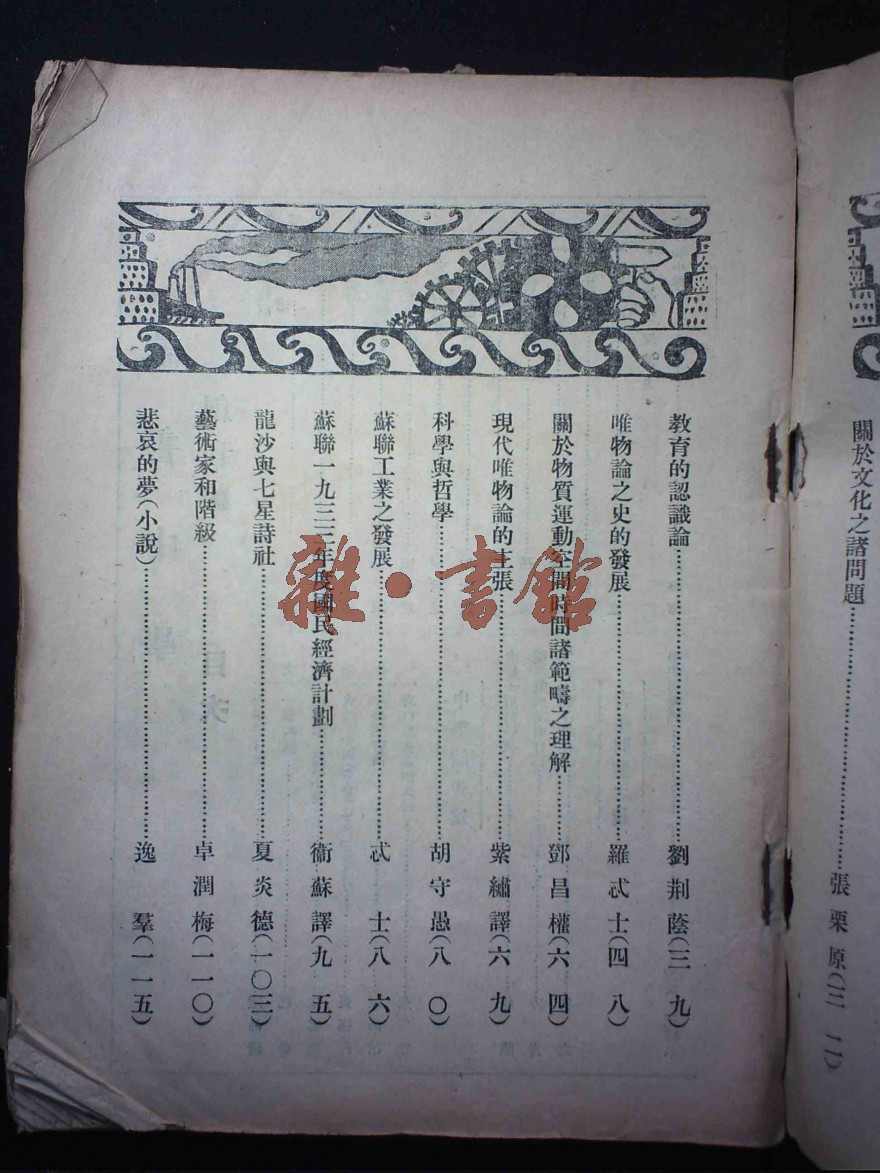 關於文化之諸問題……張栗原(三二)
教育的認識論……劉荆蔭(三九)
唯物論之史的發展……羅忒士(四八)
關於物質運動空間時間諸範疇之理解……鄧昌權(六四)
現代唯物論的主張……紫繡譯(六九)
科學與哲學……胡守愚(八〇)
蘇聯工業之發展……忒士(八六)
蘇聯一九三二年度國民經濟計劃……衞蘇譯(九五)
龍沙與七星詩社……夏炎德(一〇三)
藝術家和階級……卓潤梅(一一〇)
悲哀的夢(小說)……逸羣(一一五)
雜·書館